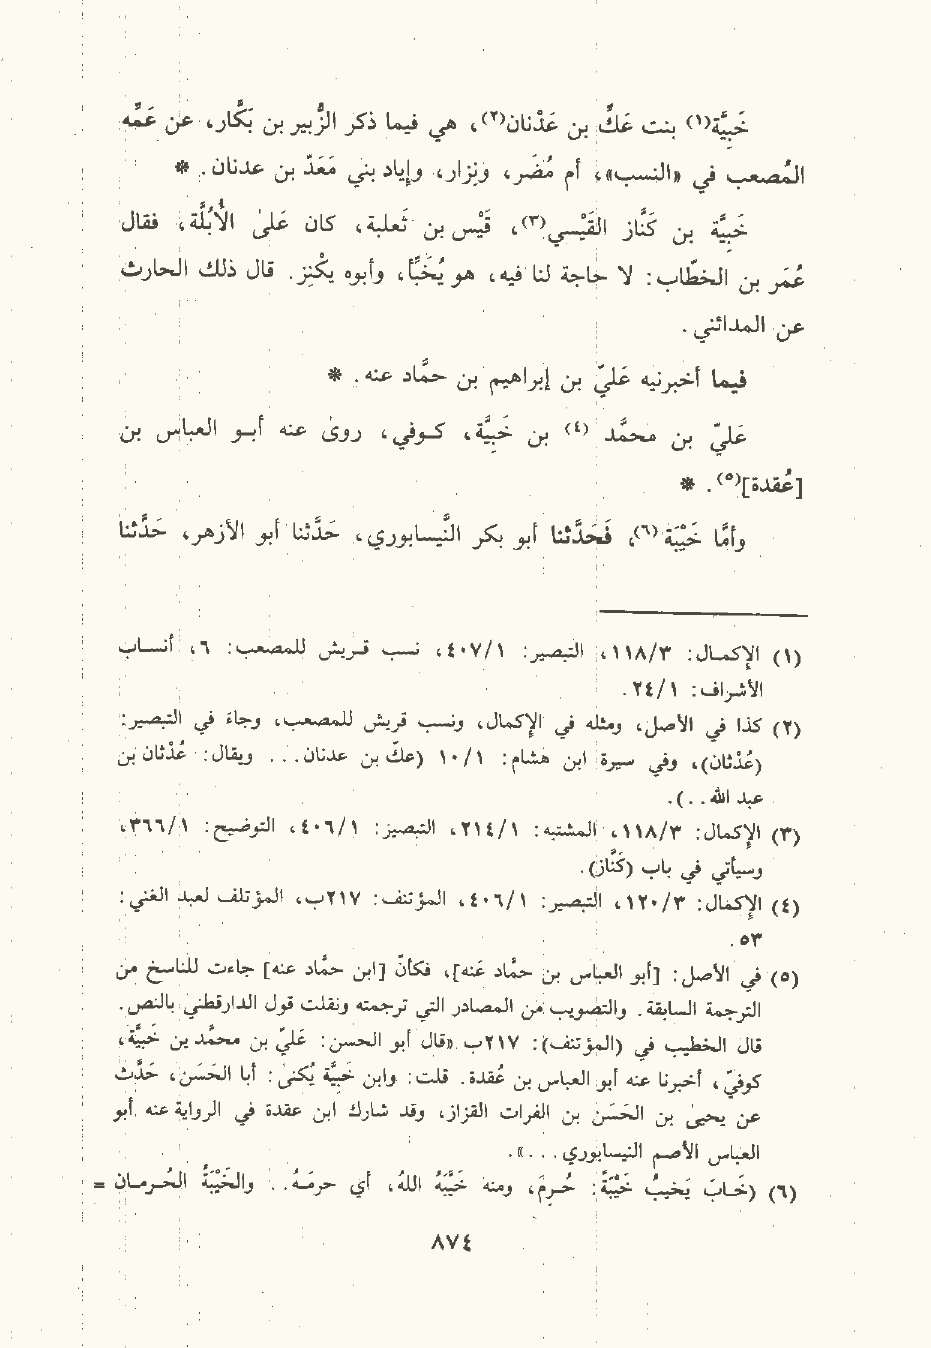 خَبِيَّة(١) بنت عَكِّ بن عَدْنان(٢)، هي فيما ذكر الزُّبير بن بَكَّار، عن عَمِّه
المُصعب في «النسب»، أم مُضَر، ونِزار، وإياد بني مَعَدّ بن عدنان. *
خَبِيَّة بن كَنَّاز القَيْسي(٣)، قَيْس بن ثَعلبة، كان عَلىٰ الأُبُلَّة، فقال
عُمَر بن الخطّاب: لا حاجة لنا فيه، هو يُخَبّأ، وأبوه يكْنِز. قال ذلك الحارث
عن المدائني.
فيما أخبرنيه عَليّ بن إبراهيم بن حمَّاد عنه. *
عَليّ بن محمَّد (٤) بن خَبِيَّة، كوفي، روىٰ عنه أبو العباس بن
[عُقدة](٥). *
وأمَّا خَيْبَة(٦)، فَحَدَّثنا أبو بكر النَّيسابوري، حَدَّثنا أبو الأزهر، حَدَّثنا
(١) الإكمال: ١١٨/٣، التبصير: ٤٠٧/١، نسب قريش للمصعب: ٦، أنساب
الأشراف: ٢٤/١.
(٢) كذا في الأصل، ومثله في الإكمال، ونسب قريش للمصعب، وجاءَ في التبصير:
(عُدْثان)، وفي سيرة ابن هشام: ١٠/١ (عكّ بن عدنان... ويقال: عُدْثان بن
عبد الله..).
(٣) الإكمال: ١١٨/٣، المشتبه: ٢١٤/١، التبصير: ٤٠٦/١، التوضيح: ٣٦٦/١،
وسيأتي في باب (كَنَّاز).
(٤) الإكمال: ١٢٠/٣، التبصير: ٤٠٦/١، المؤتنف: ٢١٧ب، المؤتلف لعبد الغني:
٥٣.
(٥) في الأصل: [أبو العباس بن حمَّاد عَنه]، فكأنّ [ابن حمَّاد عنه] جاءت للناسخ من
الترجمة السابقة. والتصويب من المصادر التي ترجمته ونقلت قول الدارقطني بالنص.
قال الخطيب في (المؤتنف): ٢١٧ب «قال أبو الحسن: عَليّ بن محمَّد بن خَبيَّة،
كوفيّ، أخبرنا عنه أبو العباس بن عُقدة. قلت: وابن خَبِيَّة يُكنىٰ: أبا الحَسَن، حَدَّث
عن يحيىٰ بن الحَسَن بن الفرات القزاز، وقد شارك ابن عقدة في الرواية عنه أبو
العباس الأصم النيسابوري...».
(٦) (خَابَ يَخيبُ خَيْبَةً: حُرِمَ، ومنه خَيَّبَهُ اللهُ، أي حرمَهُ.. والخَيْبَةُ الحُرمان =
٨٧٤